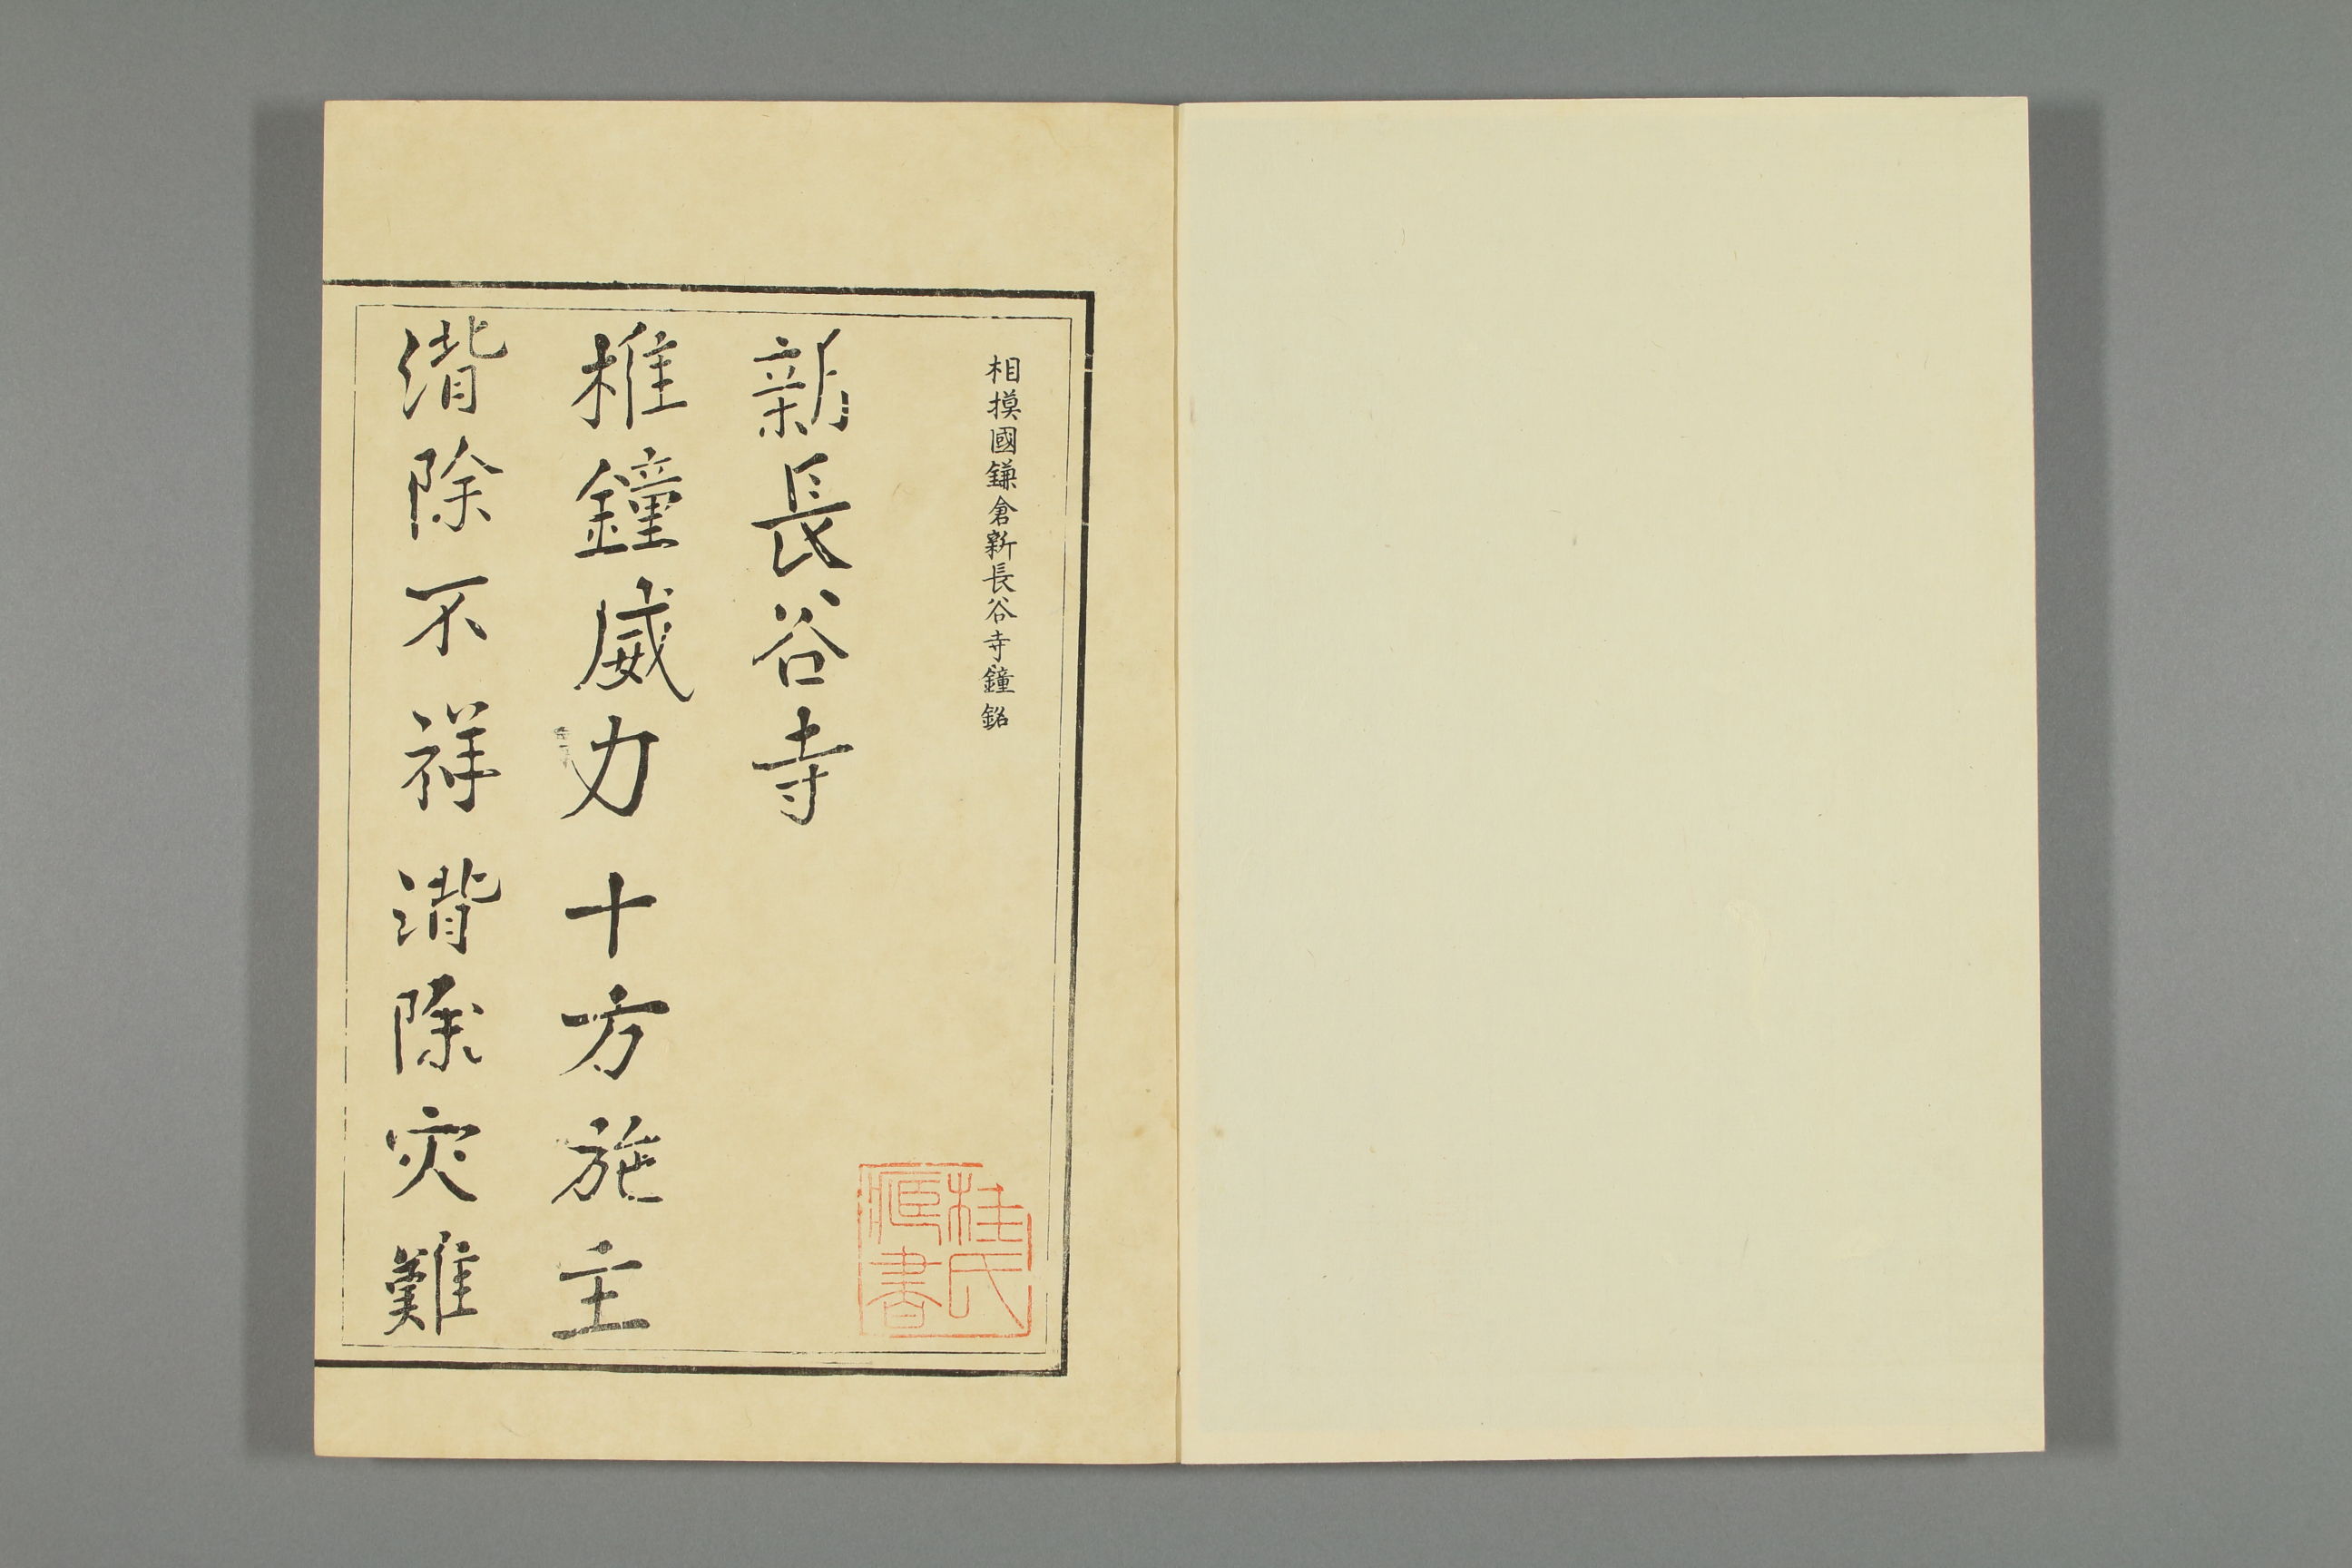 相摸國鎌倉新長谷寺鐘銘
新長谷寺
椎鐘威力十方施主
湝除不祥湝除灾難
桂氏
藏書